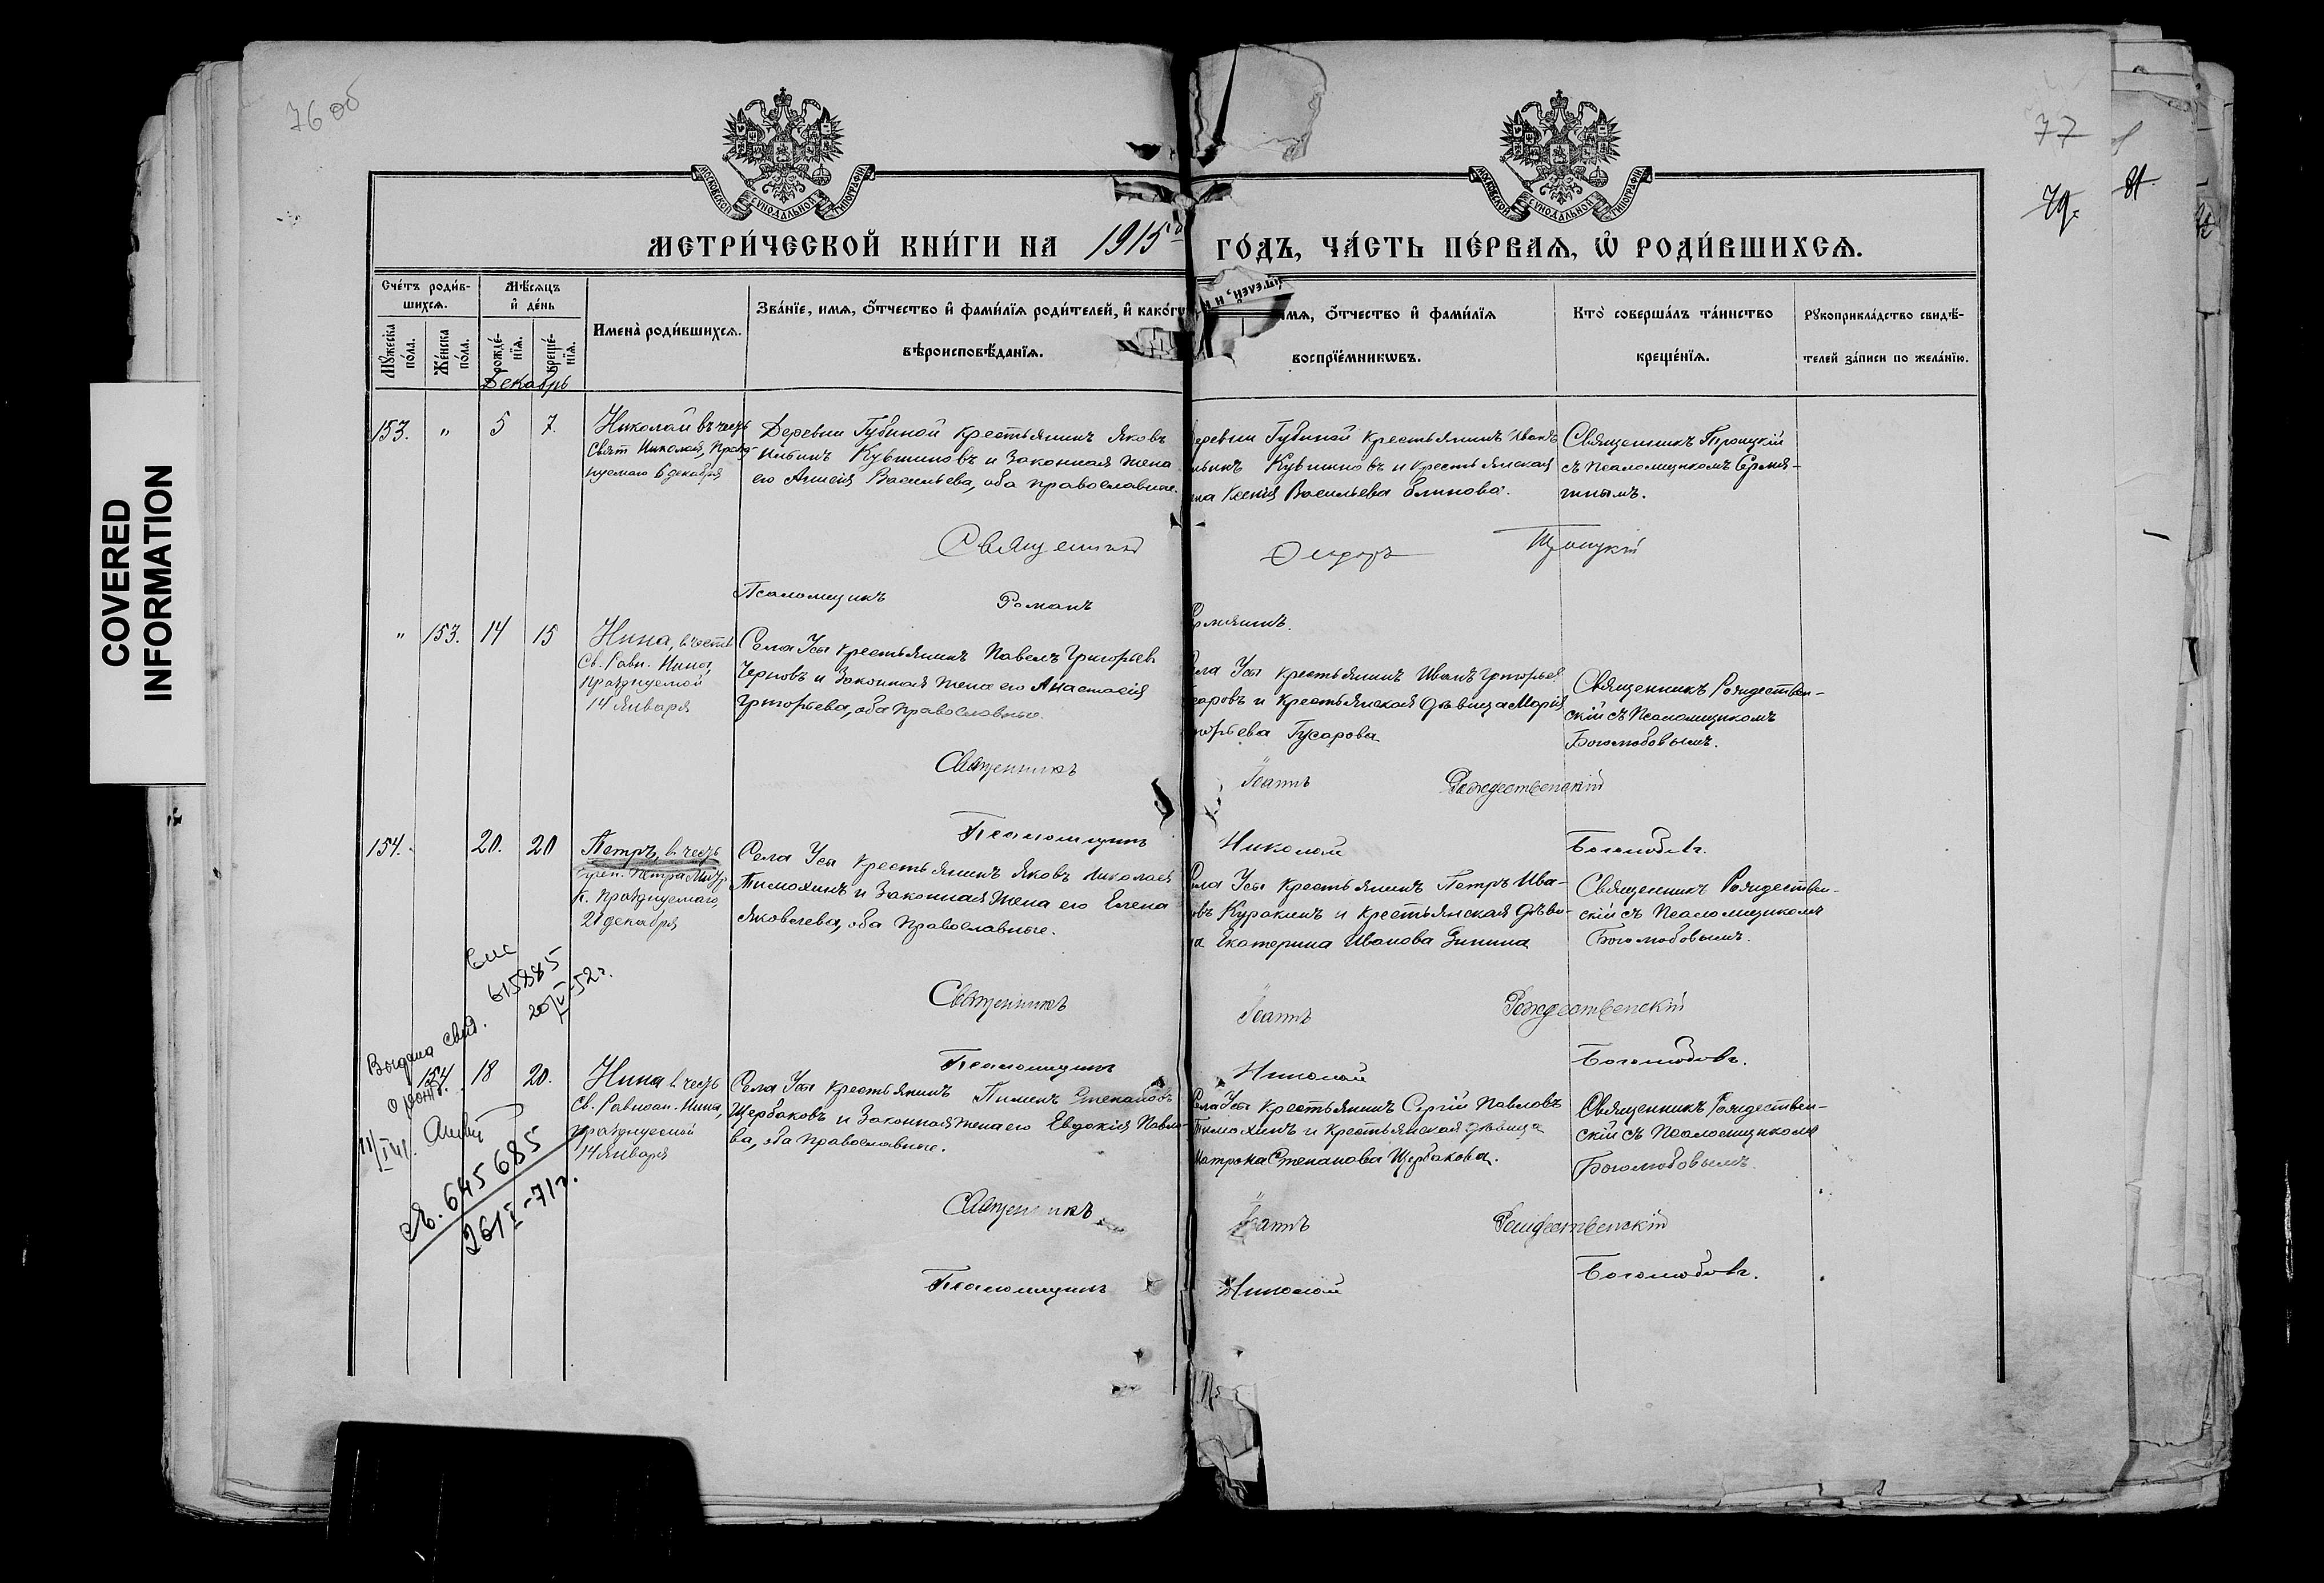 76 об
77
79.
81.
МОСКОВСКОЙ СУНОДАЛЬНОЙ ТИПОГРАФІИ
МОСКОВСКОЙ СУНОДАЛЬНОЙ ТИПОГРАФІИ
МЕТРИ́ЧЕСКОЙ КНИ́ГИ НА 1915й
ГО́ДЪ, ЧА́СТЬ ПЕ́РВАѦ, Ѽ РОДИ́ВШИХСѦ.
Сче́тъ роди́в-
шихсѧ.
Мѣ́сѧцъ
и҆ де́нь
Мꙋ́жеска
по́ла.
Же́нска
по́ла.
рожде́-
нїѧ.
креще́-
нїѧ.
Имена̀ роди́вшихсѧ.
Зва́нїе, имѧ, о҆́тчество и҆ фами́лїѧ роди́телей, и҆ како́гѡ
вѣроисповѣ́данїѧ.
имѧ, о҆́тчество и҆ фами́лїѧ
воспрїе́мникѡвъ.
Кто̀ соверша́лъ та́инство
креще́нїѧ.
Рꙋкоприкла́дство свидѣ́-
телей за́писи по жела́нїю.
Декабрь
153. " 5 7.
Николай въ честь
Свят Николая, Празд-
нуемаго 6 декабря
Деревни Губиной крестьянинъ Яковъ
Кувшиновъ и законная жена
его Васильева, оба православные.
Деревни Губиной крестьянинъ Иванъ
Кувшиновъ и крестьянская
Ксенія Васильева Блинова.
Священникъ Троицкій
съ псаломщикомъ Ермя-
нинымъ.
Священникъ Ѳедоръ Троицкій
Псаломщикъ Романъ
" 153. 14 15
Нина, въ честь
Св. Равн. Нины,
празднуемой
14 января
Села Усы крестьянинъ Павелъ Григорьевъ
Черновъ и законная жена его Анастасія
Григорьева, оба православные.
Села Усы крестьянинъ Иванъ Григорьев
Гусаровъ и крестьянская дѣвица Марія
Григорьева Гусарова
Священникъ Рождествен-
скій съ псаломщикомъ
Боголюбовымъ.
Священникъ Іоаннъ Рождественскій
Псаломщикъ Николай Боголюбовъ.
154. 20. 20
Петръ, въ честь
Петра Митр.
К. празднуемаго,
21 декабря
Села Усы крестьянинъ Яковъ Николаев
Тимохинъ и законная жена его Елена
Яковлева, оба православные.
Села Усы крестьянинъ Петръ Ива-
новъ Куракинъ и крестьянская дѣви-
ца Екатерина Иванова Зинина
Священникъ Рождествен-
скій съ псаломщикомъ
Боголюбовымъ.
Священникъ Іоаннъ Рождественскій
Псаломщикъ Николай Боголюбовъ.
615885
20/V-52 г.
Выдана свид.
о рожд.
154 18 20.
Нина въ честь
Св. Равноап. Нины,
празднуемой
14 января
Села Усы крестьянинъ Пименъ Степановъ
Щербаковъ и законная жена его Евдокія Павло-
ва, оба православные.
Села Усы крестьянинъ Сергій Павловъ
Тимохинъ и крестьянская дѣвица
Матрона Степанова Щербакова.
Священникъ Рождествен-
скій съ псаломщикомъ
Боголюбовымъ.
645685
26/I-71 г.
Священникъ Іоаннъ Рождественскій
Псаломщикъ Николай Боголюбовъ.
COVERED
INFORMATION